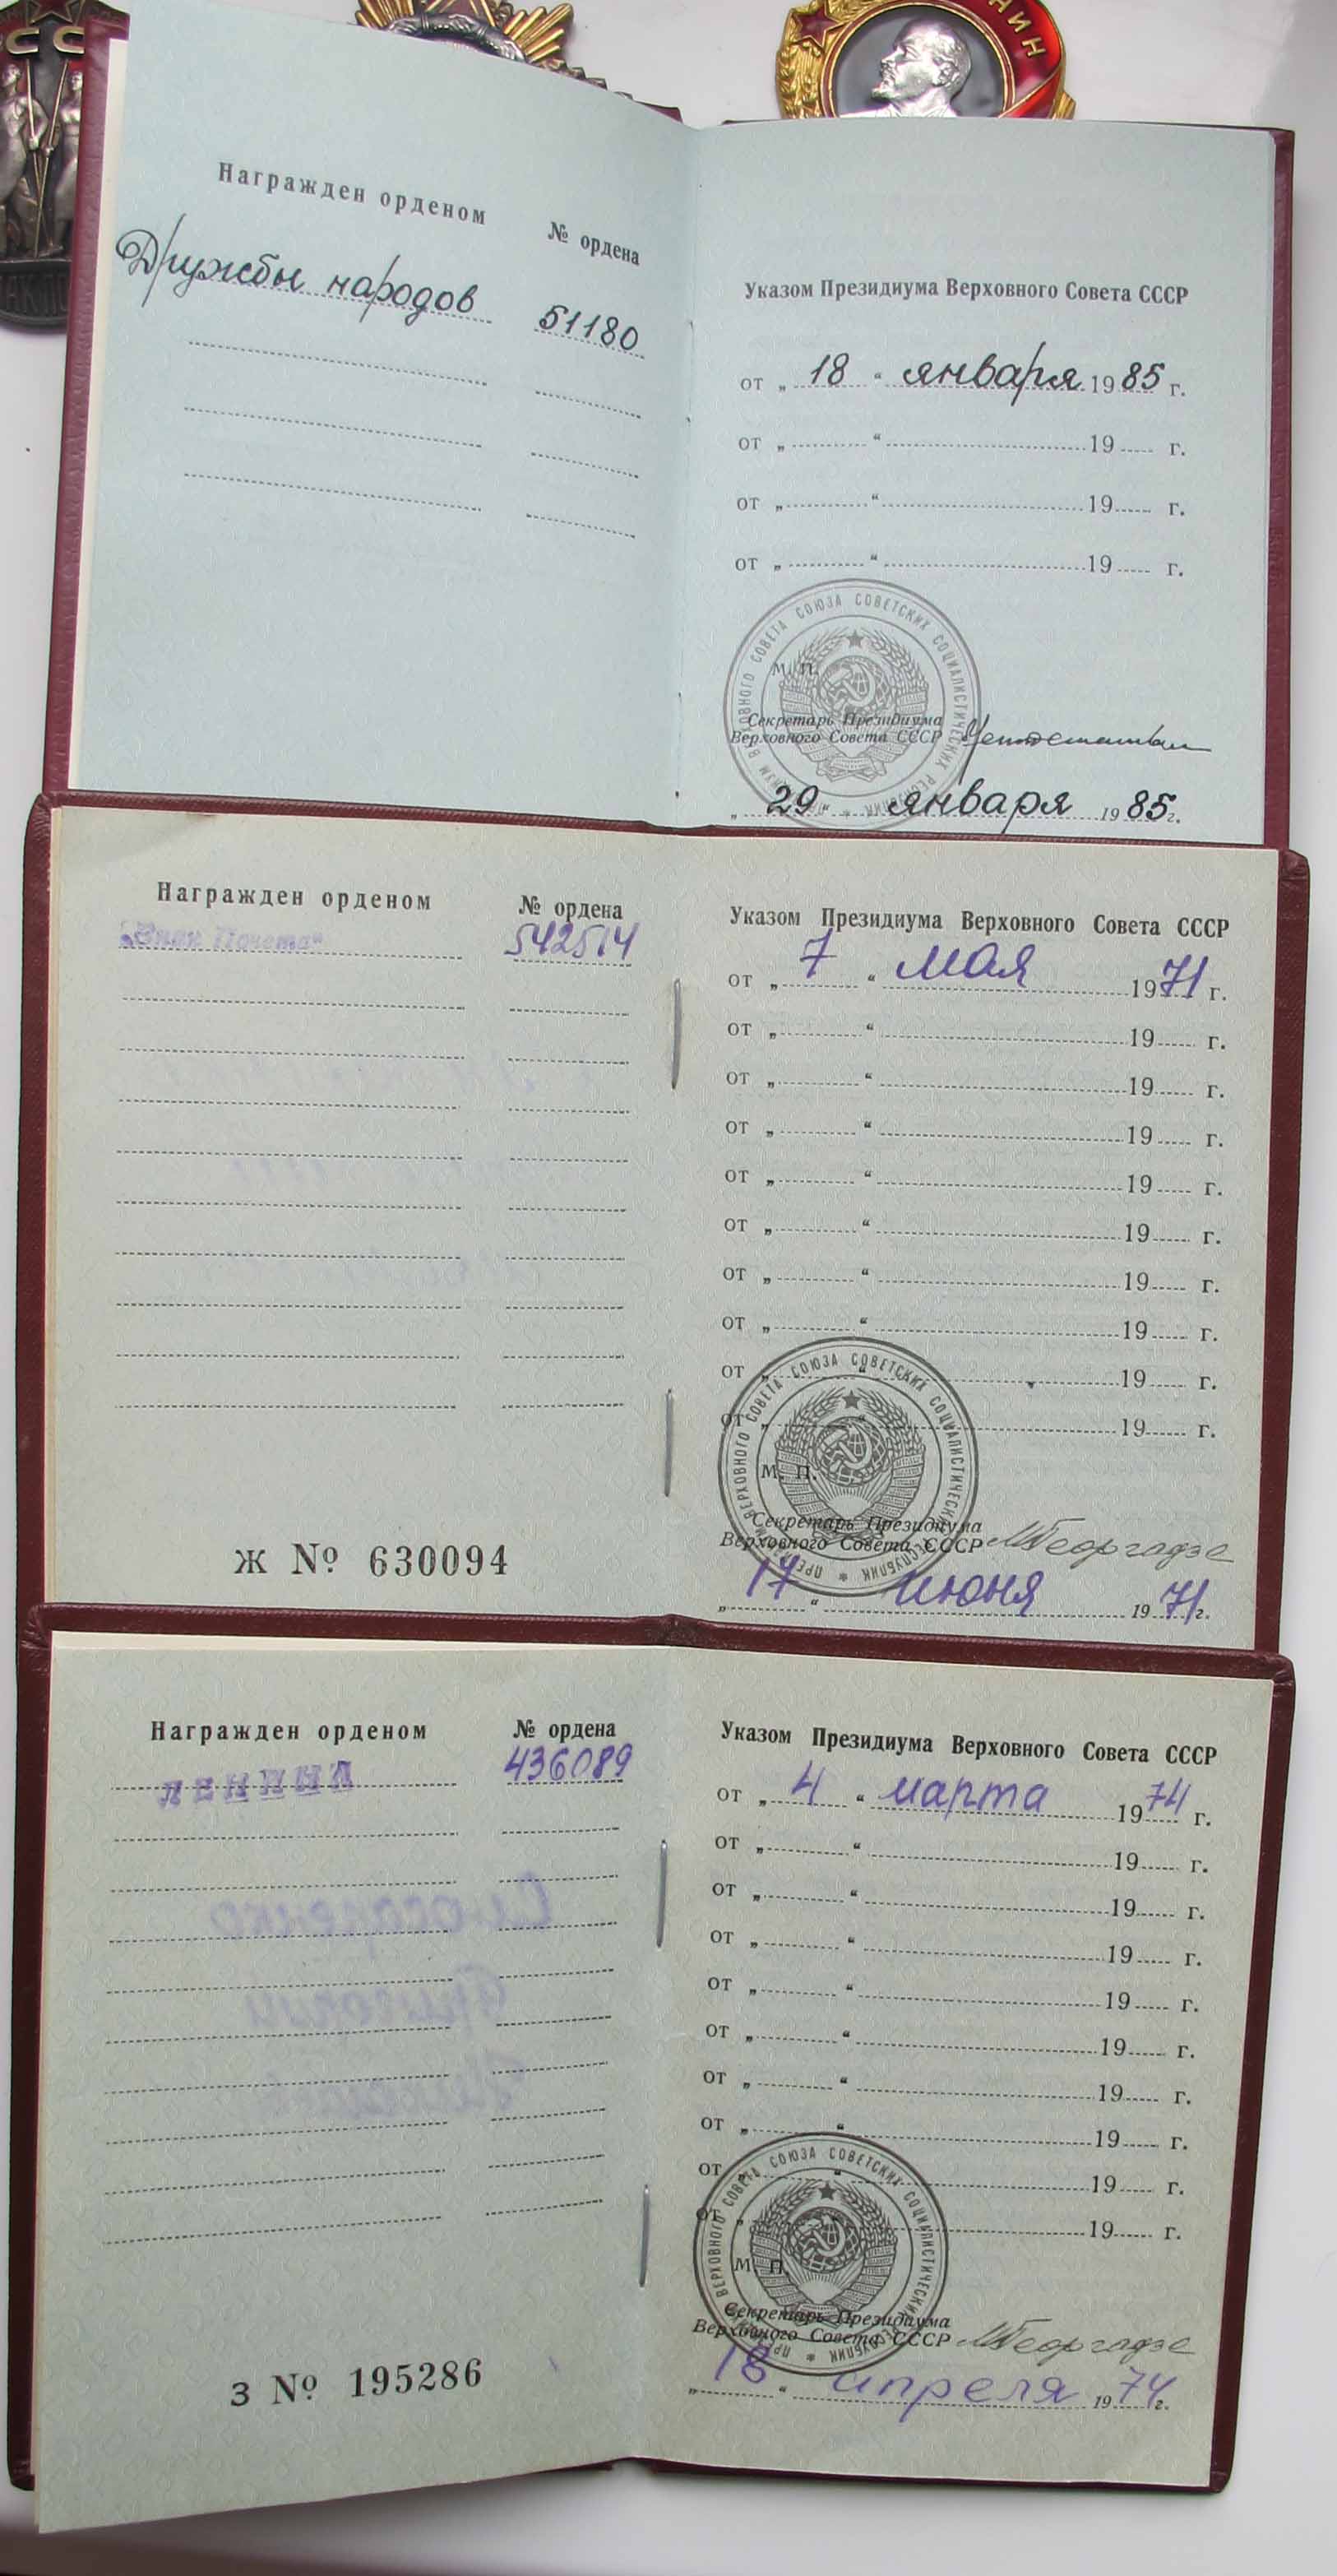 СС
НИН
Награжден орденом № ордена
Дружбы народов 51180
Указом Президиума Верховного Совета СССР
от „ 18 “ января 1985 г.
от „ “ 19 г.
от „ “ 19 г.
от „ “ 19 г.
ПРЕЗИДИУМ ВЕРХОВНОГО СОВЕТА СОЮЗА СОВЕТСКИХ СОЦИАЛИСТИЧЕСКИХ РЕСПУБЛИК
М. П.
Секретарь Президиума
Верховного Совета СССР
„ 29 “ января 1985 г.
Награжден орденом № ордена
„Знак Почета“ 542514
Ж № 630094
Указом Президиума Верховного Совета СССР
от „ 7 “ мая 1971 г.
от „ “ 19 г.
от „ “ 19 г.
от „ “ 19 г.
от „ “ 19 г.
от „ “ 19 г.
от „ “ 19 г.
от „ “ 19 г.
от „ “ 19 г.
от „ “ 19 г.
ПРЕЗИДИУМ ВЕРХОВНОГО СОВЕТА СОЮЗА СОВЕТСКИХ СОЦИАЛИСТИЧЕСКИХ РЕСПУБЛИК
М. П.
Секретарь Президиума
Верховного Совета СССР МГеоргадзе
„ 17 “ июня 1971 г.
Награжден орденом № ордена
ЛЕНИНА 436089
З № 195286
Указом Президиума Верховного Совета СССР
от „ 4 “ марта 1974 г.
от „ “ 19 г.
от „ “ 19 г.
от „ “ 19 г.
от „ “ 19 г.
от „ “ 19 г.
от „ “ 19 г.
от „ “ 19 г.
от „ “ 19 г.
от „ “ 19 г.
ПРЕЗИДИУМ ВЕРХОВНОГО СОВЕТА СОЮЗА СОВЕТСКИХ СОЦИАЛИСТИЧЕСКИХ РЕСПУБЛИК
М. П.
Секретарь Президиума
Верховного Совета СССР МГеоргадзе
„ 18 “ апреля 1974 г.